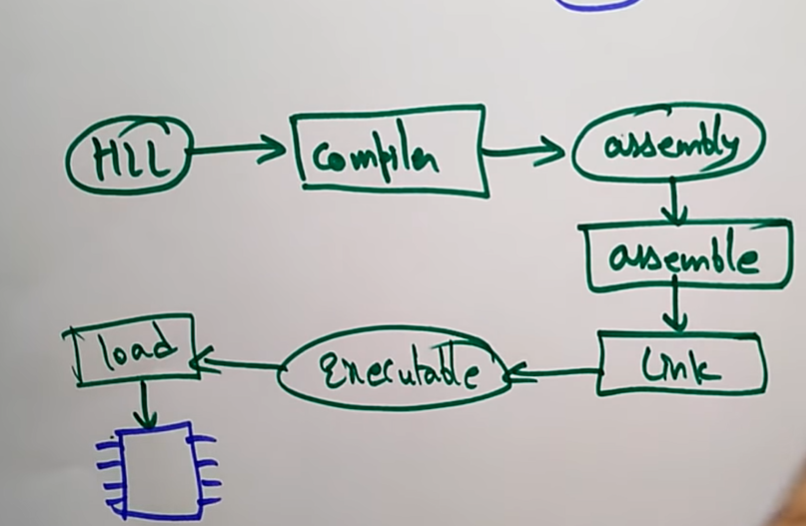 HLL
Compiler
assembly
assemble
Link
Executable
load